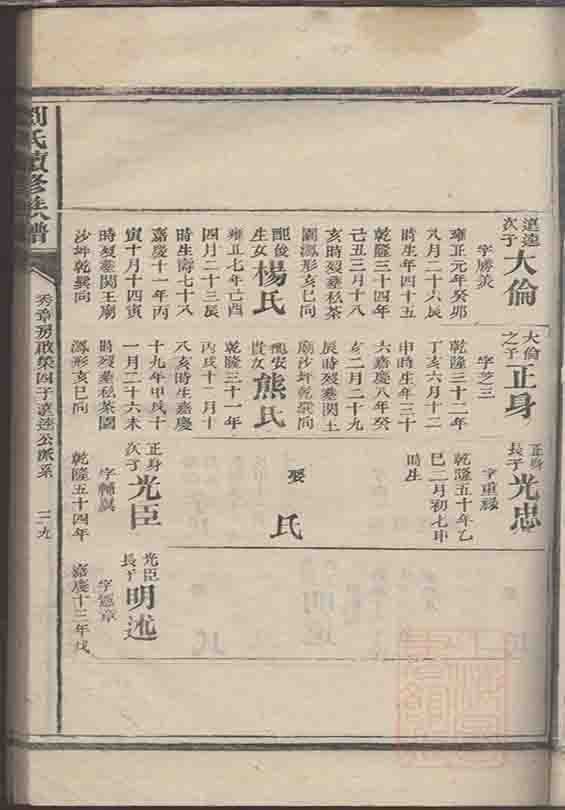 劉氏續修族譜
秀章房啟榮四子遠達公派系
三九
遠達
次子
大倫
字勝美
雍正元年癸卯
八月二十六辰
時生年四十五
乾隆三十四年
己丑三月十八
亥時殁塟私茶
園鳳形亥巳向
配俊
生女
楊氏
雍正七年己酉
四月二十三辰
時生壽七十八
嘉慶十一年丙
寅十月十四寅
時殁塟関王廟
沙坪乾巽向
大倫
之子
正身
字芝三
乾隆三十二年
丁亥六月十二
申時生年三十
六嘉慶八年癸
亥二月二十九
辰時殁塟関王
廟沙坪乾巽向
配安
貴女
熊氏
乾隆三十一年
丙戌十二月十
八亥時生嘉慶
十九年甲戌十
一月二十六未
時殁塟私茶園
鳳形亥巳向
正身
長子
光忠
字重祿
乾隆五十年乙
巳二月初七申
時生
娶
氏
正身
次子
光臣
字輔嚴
乾隆五十四年
光臣
長子
明述
字憲章
嘉慶十三年戊